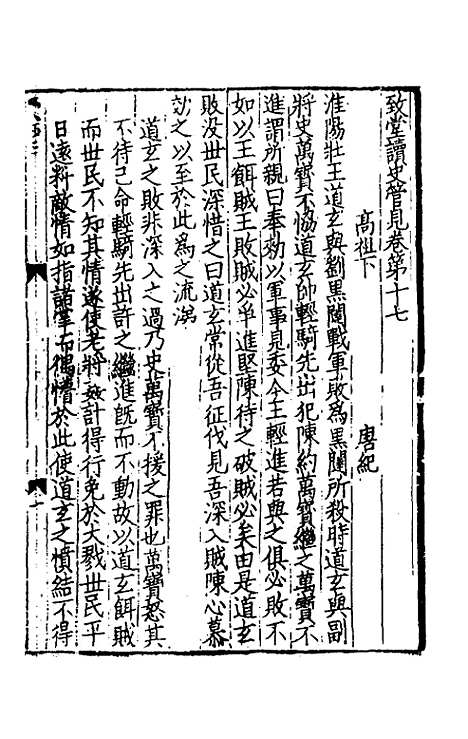 致堂讀史管見卷第十七
高祖下　唐紀
淮陽壯王道玄與劉黑闥戰軍敗為黑闥所殺時道玄與副
將史萬寶不協道玄帥輕騎先出犯陳約萬寶繼之萬寶不
進謂所親曰奉勑以軍事見委今王輕進若與之俱必敗不
如以王餌賊王敗賊必爭進堅陳待之破賊必矣由是道玄
敗沒世民深惜之曰道玄常從吾征伐見吾深入賊陳心慕
効之以至於此為之流涕
道玄之敗非深入之過乃史萬寶不援之罪也萬寶怒其
不待己命輕騎先出許之繼進旣而不動故以道玄餌賊
而世民不知其情遂使老將姦計得行免於大戮世民平
日遠料敵情如指諸掌而偶懵於此使道玄之憤結不得